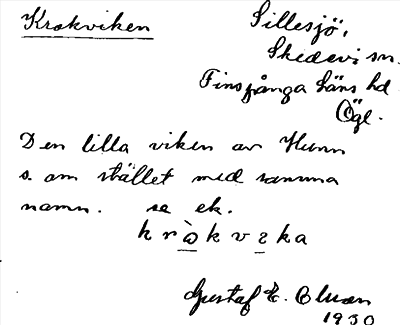 Krokviken
Sillesjö,
Skedevi sn.
Finspånga läns hd.
Ögl.
Den lilla viken av Hunn
s. om stället med samma
namn. se ek.
krὼkvika
Gustaf E.
1930